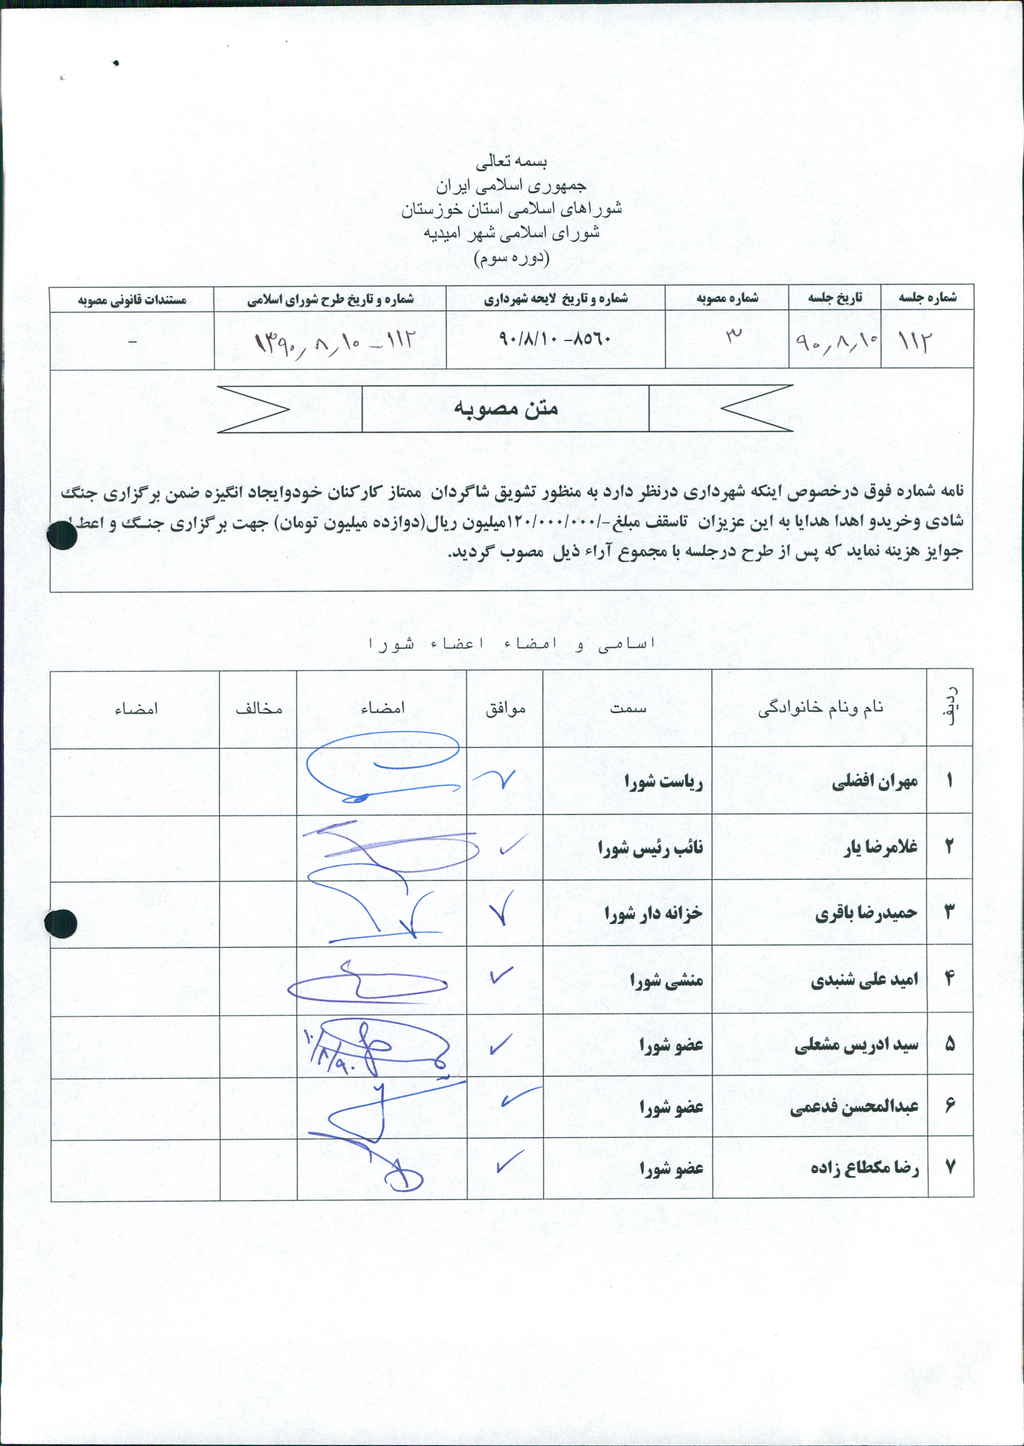 بسمه تعالی
جمهوری اسلامی ایران
شوراهای اسلامی استان خوزستان
شورای اسلامی شهر امیدیه
(دوره سوم)
شماره جلسه تاریخ جلسه شماره مصوبه شماره و تاریخ لایحه شهرداری شماره و تاریخ طرح شورای اسلامی مستندات قانونی مصوبه
۱۱۲ ۹۰/۸/۱۰ ۳ ۸۵۶۰-۹۰/۸/۱۰ ۱۱۲-۱۳۹۰/۸/۱۰ -
متن مصوبه
نامه شماره فوق درخصوص اینکه شهرداری درنظر دارد به منظور تشویق شاگردان ممتاز کارکنان خودوایجاد انگیزه ضمن برگزاری جنگ
شادی وخریدو اهدا هدایا به این عزیزان تاسقف مبلغ -/۱۲۰/۰۰۰/۰۰۰میلیون ریال(دوازده میلیون تومان) جهت برگزاری جنگ و
جوایز هزینه نماید که پس از طرح درجلسه با مجموع آراء ذیل مصوب گردید.
اسامی و امضاء اعضاء شورا
ردیف نام ونام خانوادگی سمت موافق امضاء مخالف امضاء
۱ مهران افضلی ریاست شورا
۲ غلامرضا یار نائب رئیس شورا
۳ حمیدرضا باقری خزانه دار شورا
۴ امید علی شنبدی منشی شورا
۵ سید ادریس مشعلی عضو شورا ۱۰/۸/۹۰
۶ عبدالمحسن فدعمی عضو شورا
۷ رضا مکطاع زاده عضو شورا